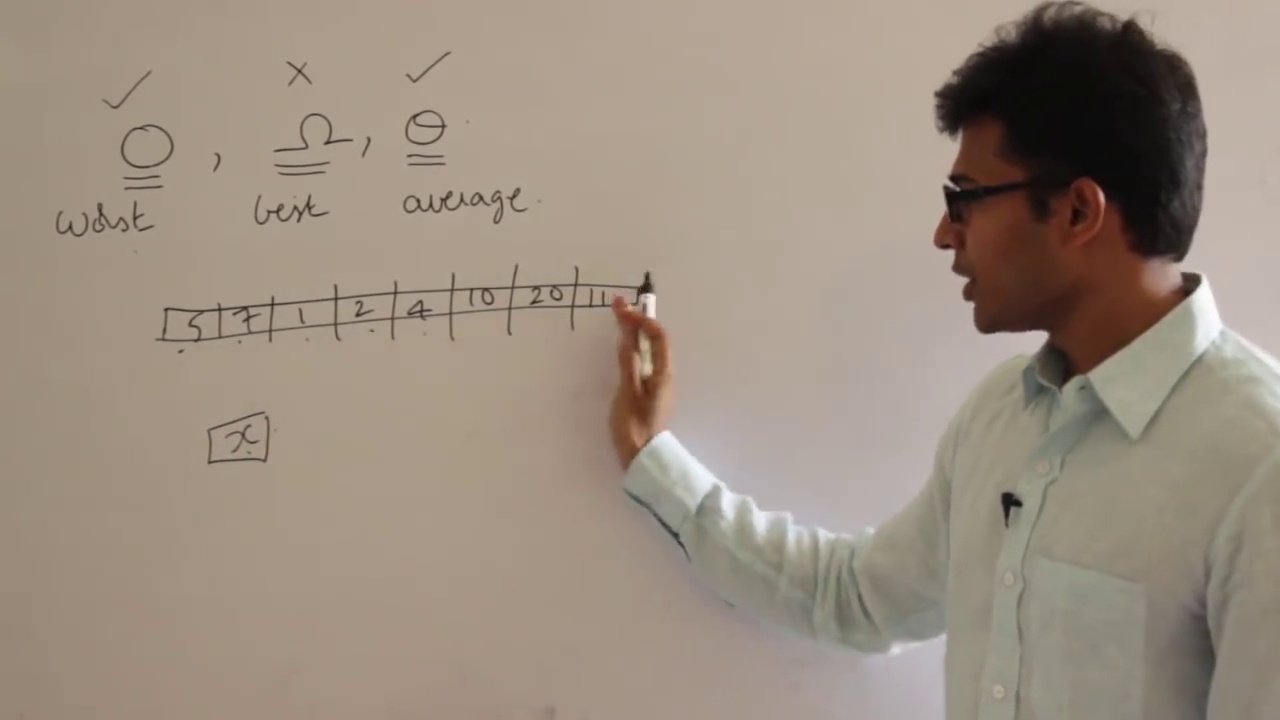 ✓ × ✓
O , Ω , Θ
worst best average.
5 7 1 2 4 10 20 11
x